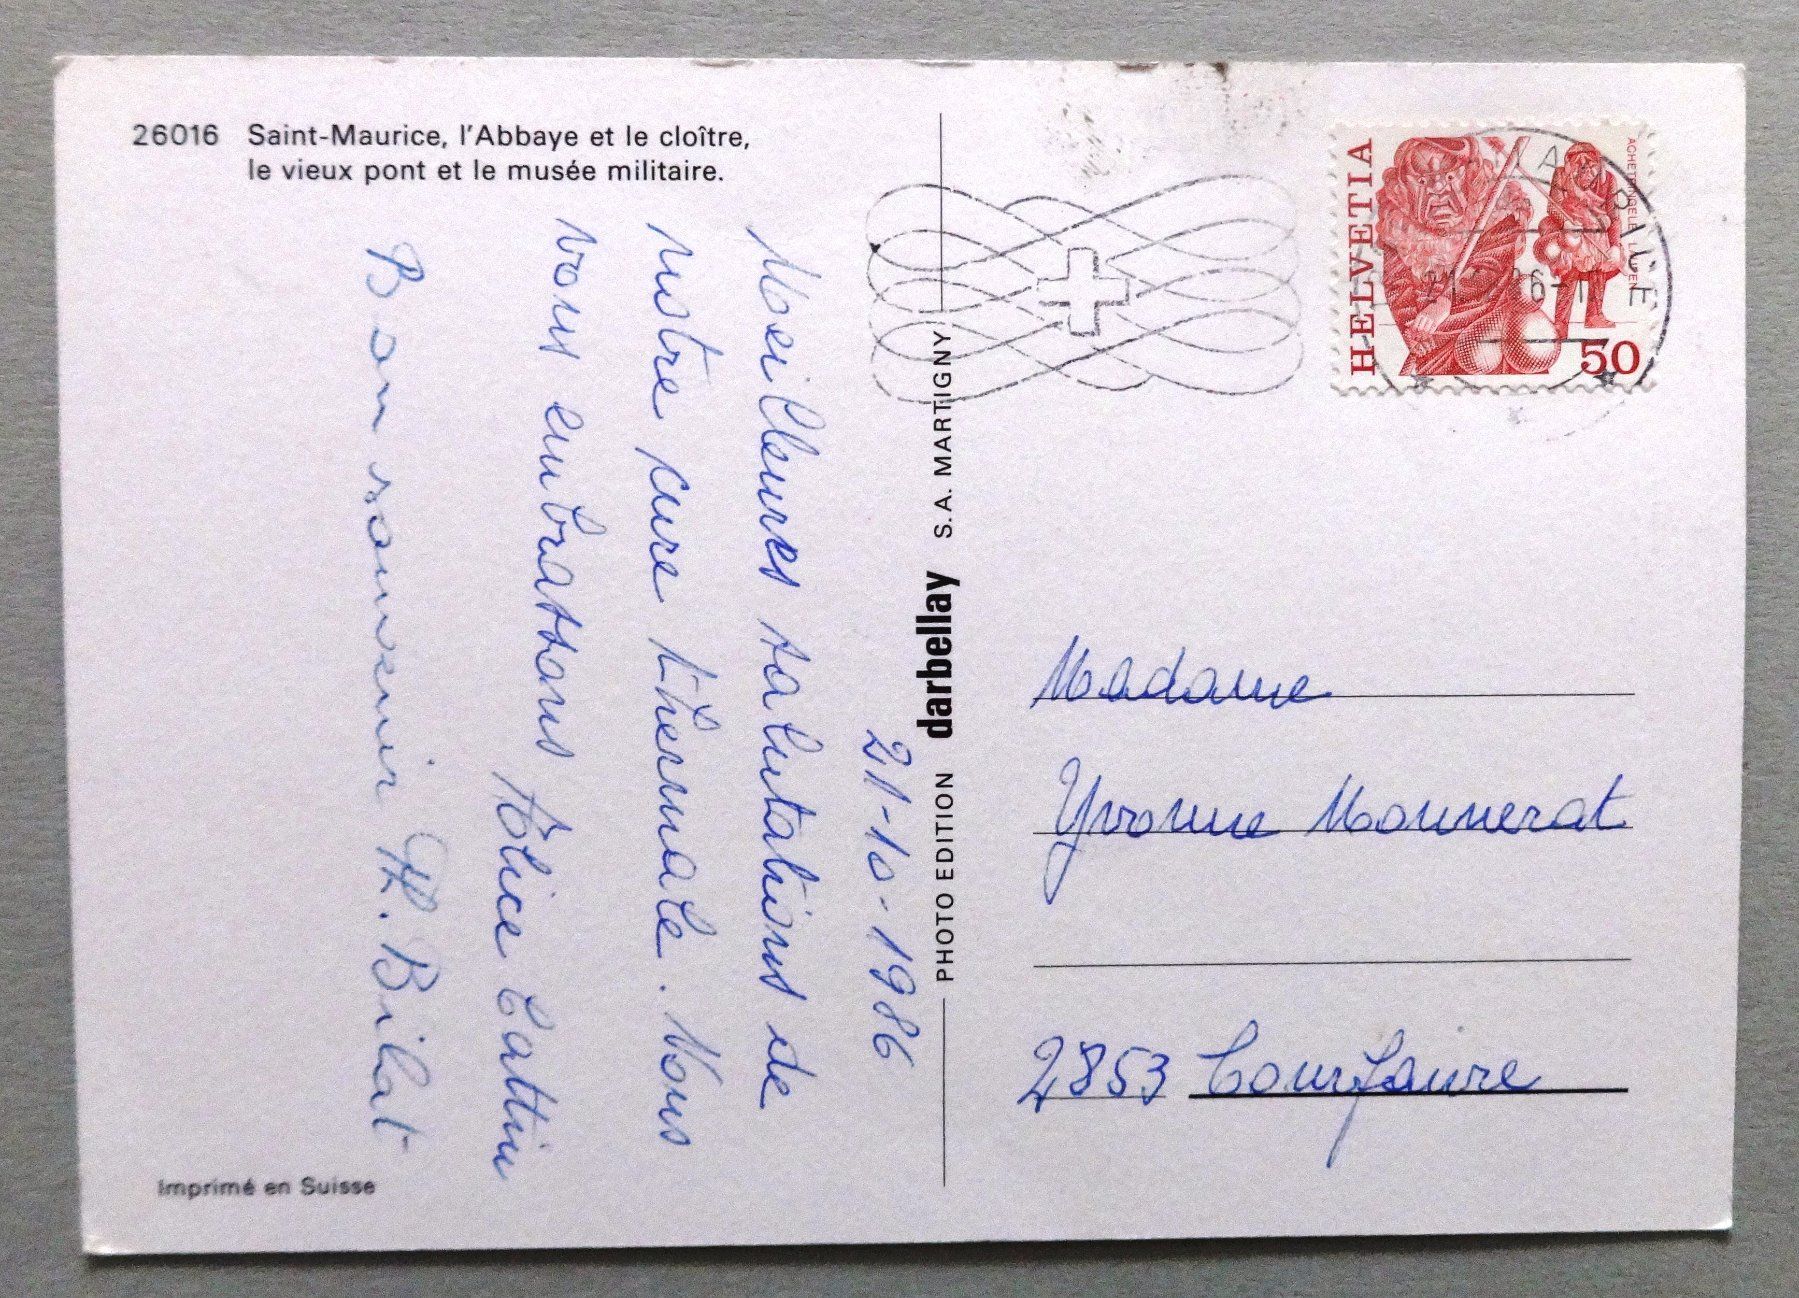 26016 Saint-Maurice, l'Abbaye et le cloître,
le vieux pont et le musée militaire.
21-10-1986
Meilleures salutations de
notre cure thermale. Nous
vous embrassons Alice Cattin
Bon souvenir H. Bilat
Imprimé en Suisse
PHOTO EDITION darbellay S.A. MARTIGNY
HELVETIA
50
Madame
Yvonne Monnerat
2853 Courfaivre